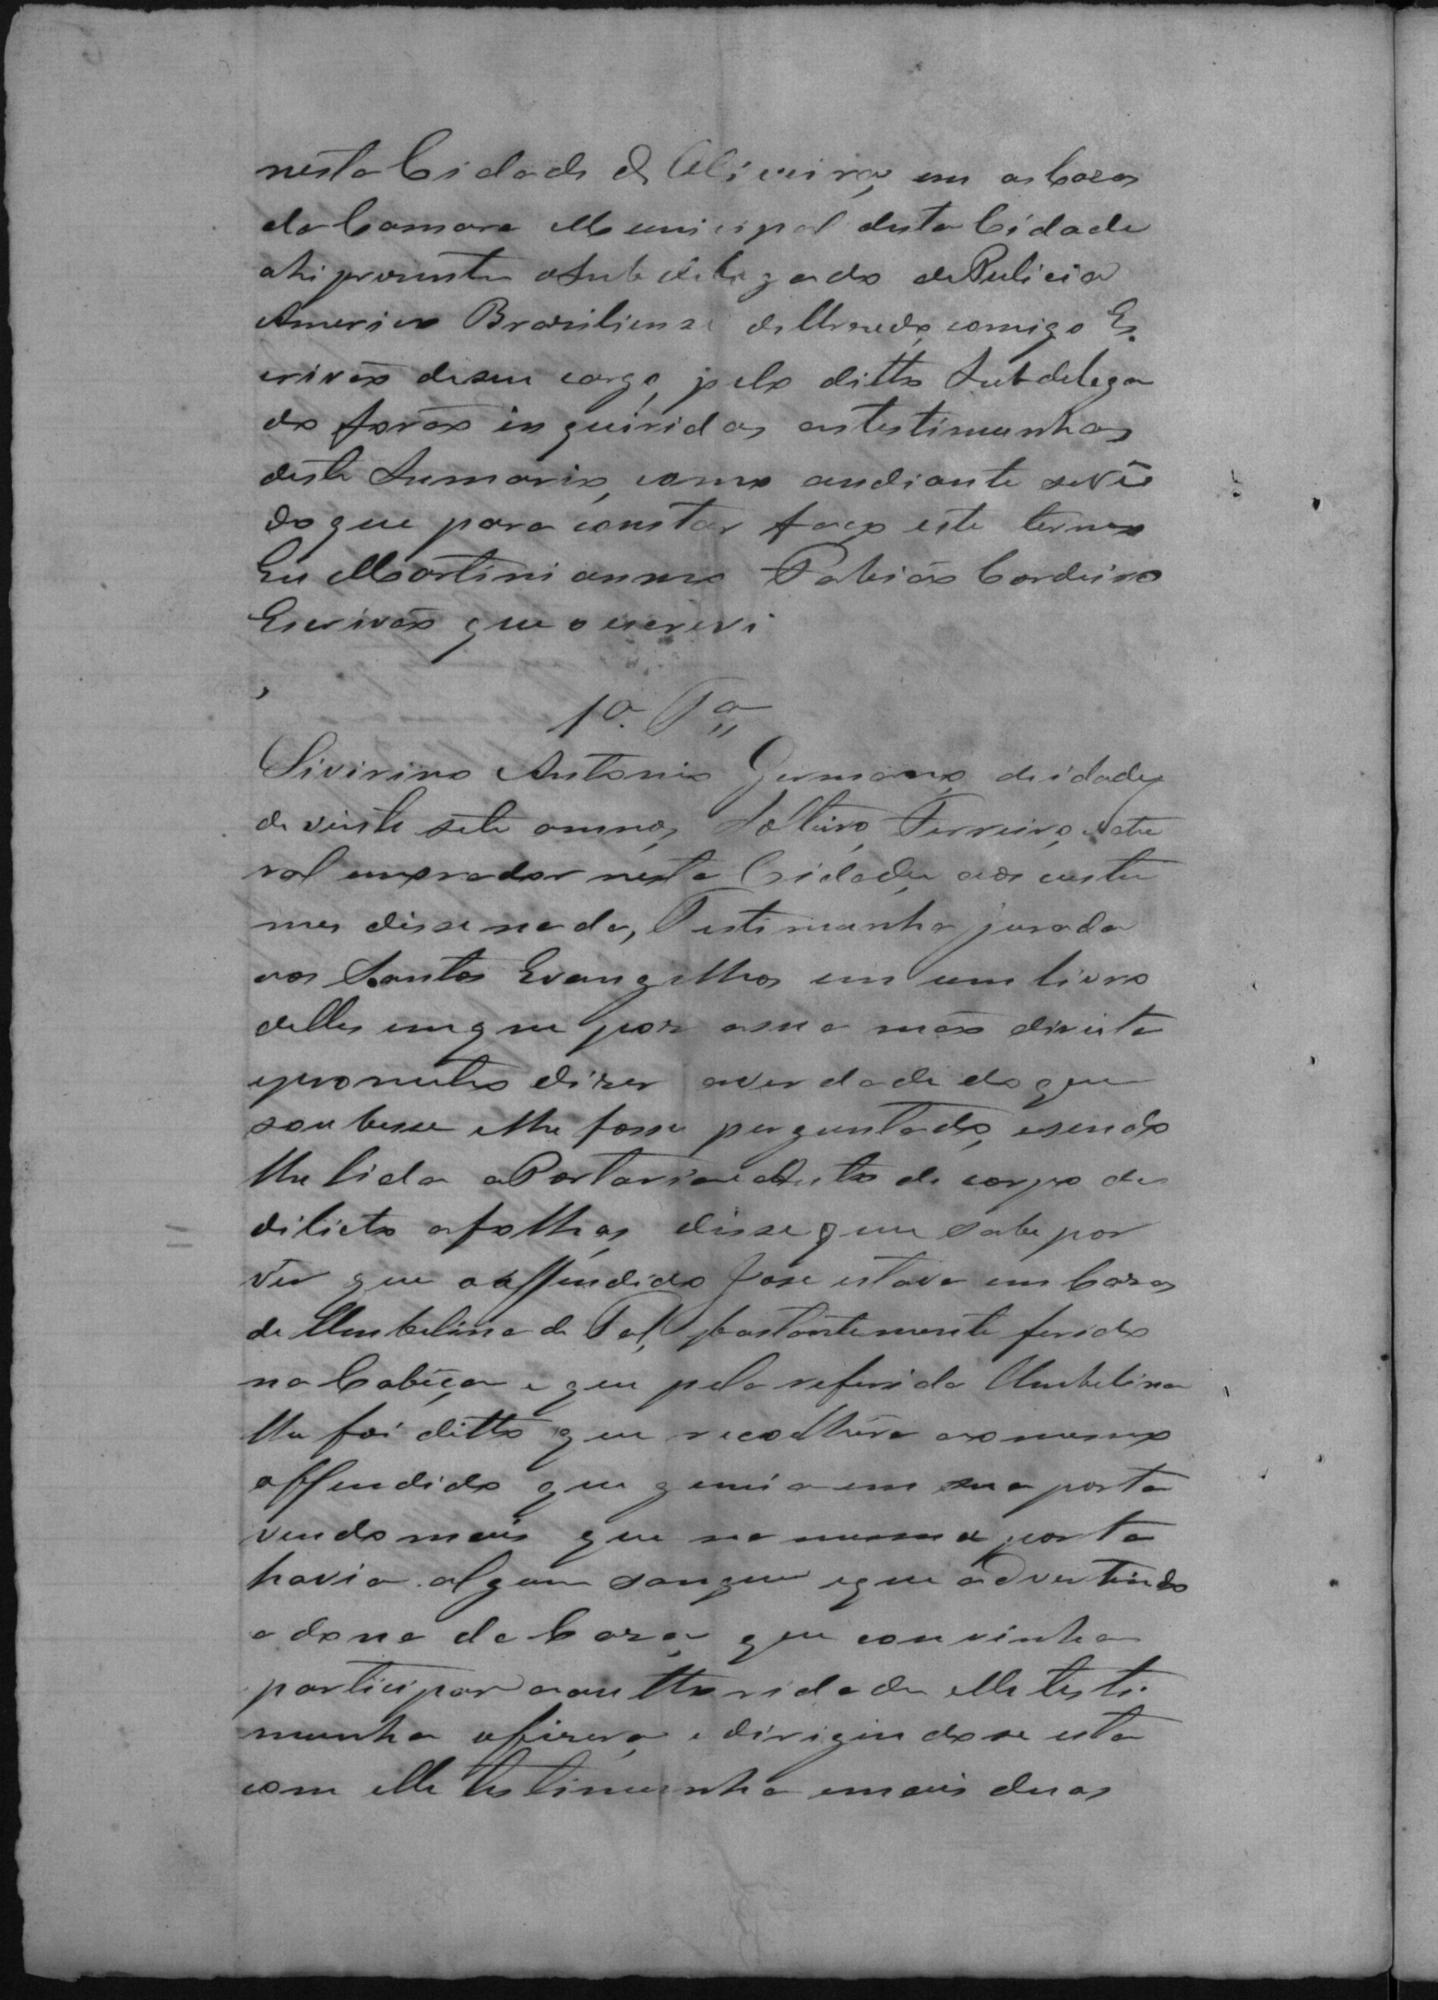 nesta Cidade de Oliveira, em as Cazas
da Camara Municipal desta Cidade
ahi prezente o Subdelegado de Pulicia
Americo Braziliense de comigo Es-
crivão deseu cargo, pelo ditto Subdelega
do forão inqueiridas as testimunhas
deste Sumario, como audiante severá
do que para constar faço este termo
Eu Martinianno Cordeiro
Escrivão que o escrevi
1ª. Tª
Sivirino Antonio Germano, de idade
de vinte sete annos, Solteiro, Ferreiro, natu
ral emorador nesta Cidade, aos custu
mes disse nada, Testimunha jurada
aos Santos Evangelhos em um livro
delles emque por asua mão direita
epromuteo dizer averdade do que
soubesse elhe fosse perguntado, esendo
lhe lida a Portaria e Auto de corpo de
dilicto afolhas, disse que sabe por
ver que o offendido Jose estava em Caza
de Umbelina de Tal, bastantemente ferido
na Cabeça e que pela referida Umbelina
lhe foi ditto que recolhera ao mesmo
offendido que gemia em sua porta
vendo mais que na mesma porta
havia algum sangue eque advertindo
a dona da Caza, que convinha
participar aauttoridade elle testi-
munha ofizera, e dirigindose esta
com elle testimunha emais duas